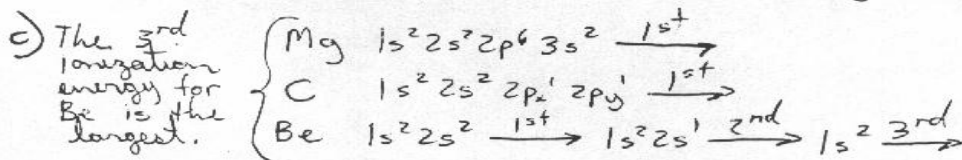 c) The 3rd
Ionization
energy for
Be is the
largest.
Mg 1s² 2s² 2p⁶ 3s² 1st →
C 1s² 2s² 2pₓ¹ 2py¹ 1st →
Be 1s² 2s² 1st → 1s² 2s¹ 2nd → 1s² 3rd →